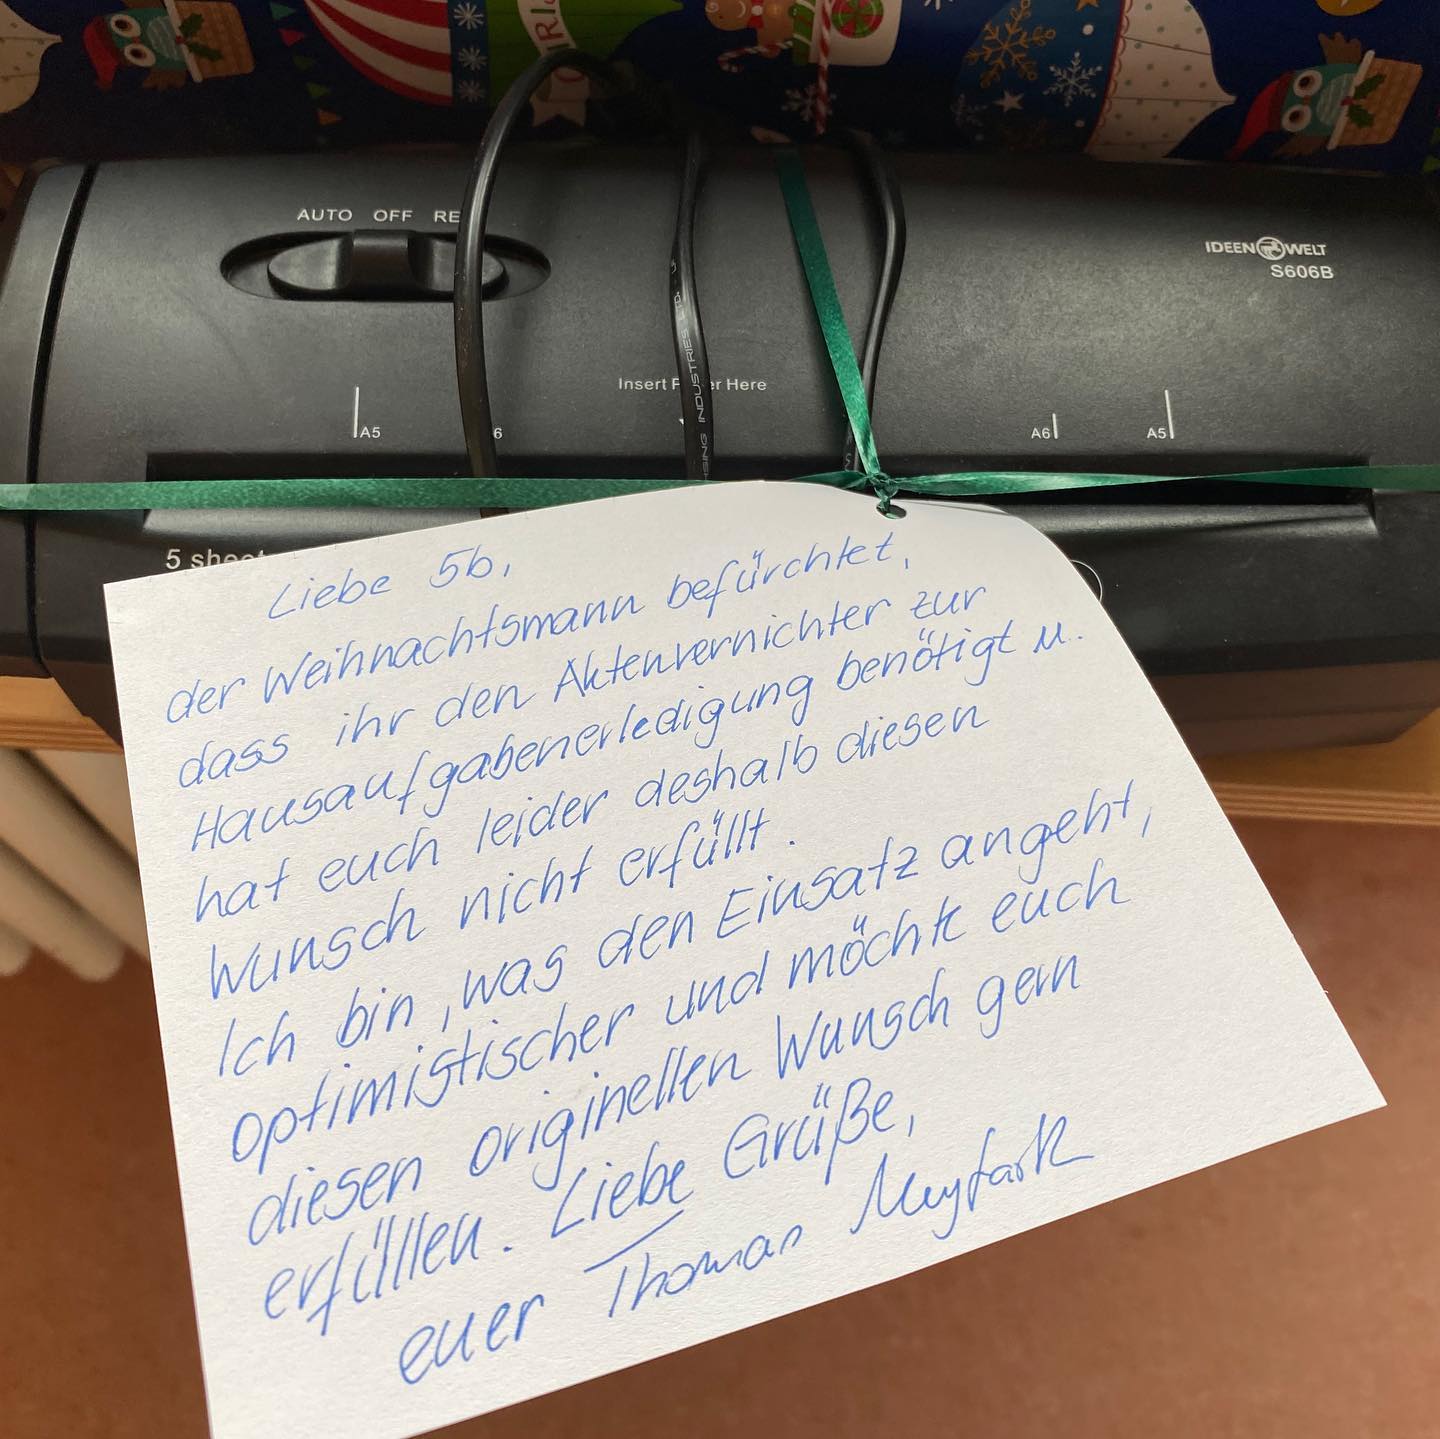 AUTO OFF RE
IDEEN WELT
S606B
Insert P er Here
A5
6
A6
A5
5 sheet
SING INDUSTRIES LTD.
Liebe 5b,
der Weihnachtsmann befürchtet,
dass ihr den Aktenvernichter zur
Hausaufgabenerledigung benötigt u.
hat euch leider deshalb diesen
Wunsch nicht erfüllt.
Ich bin, was den Einsatz angeht,
optimistischer und möchte euch
diesen originellen Wunsch gern
erfüllen. Liebe Grüße,
euer Thomas Meyfarth